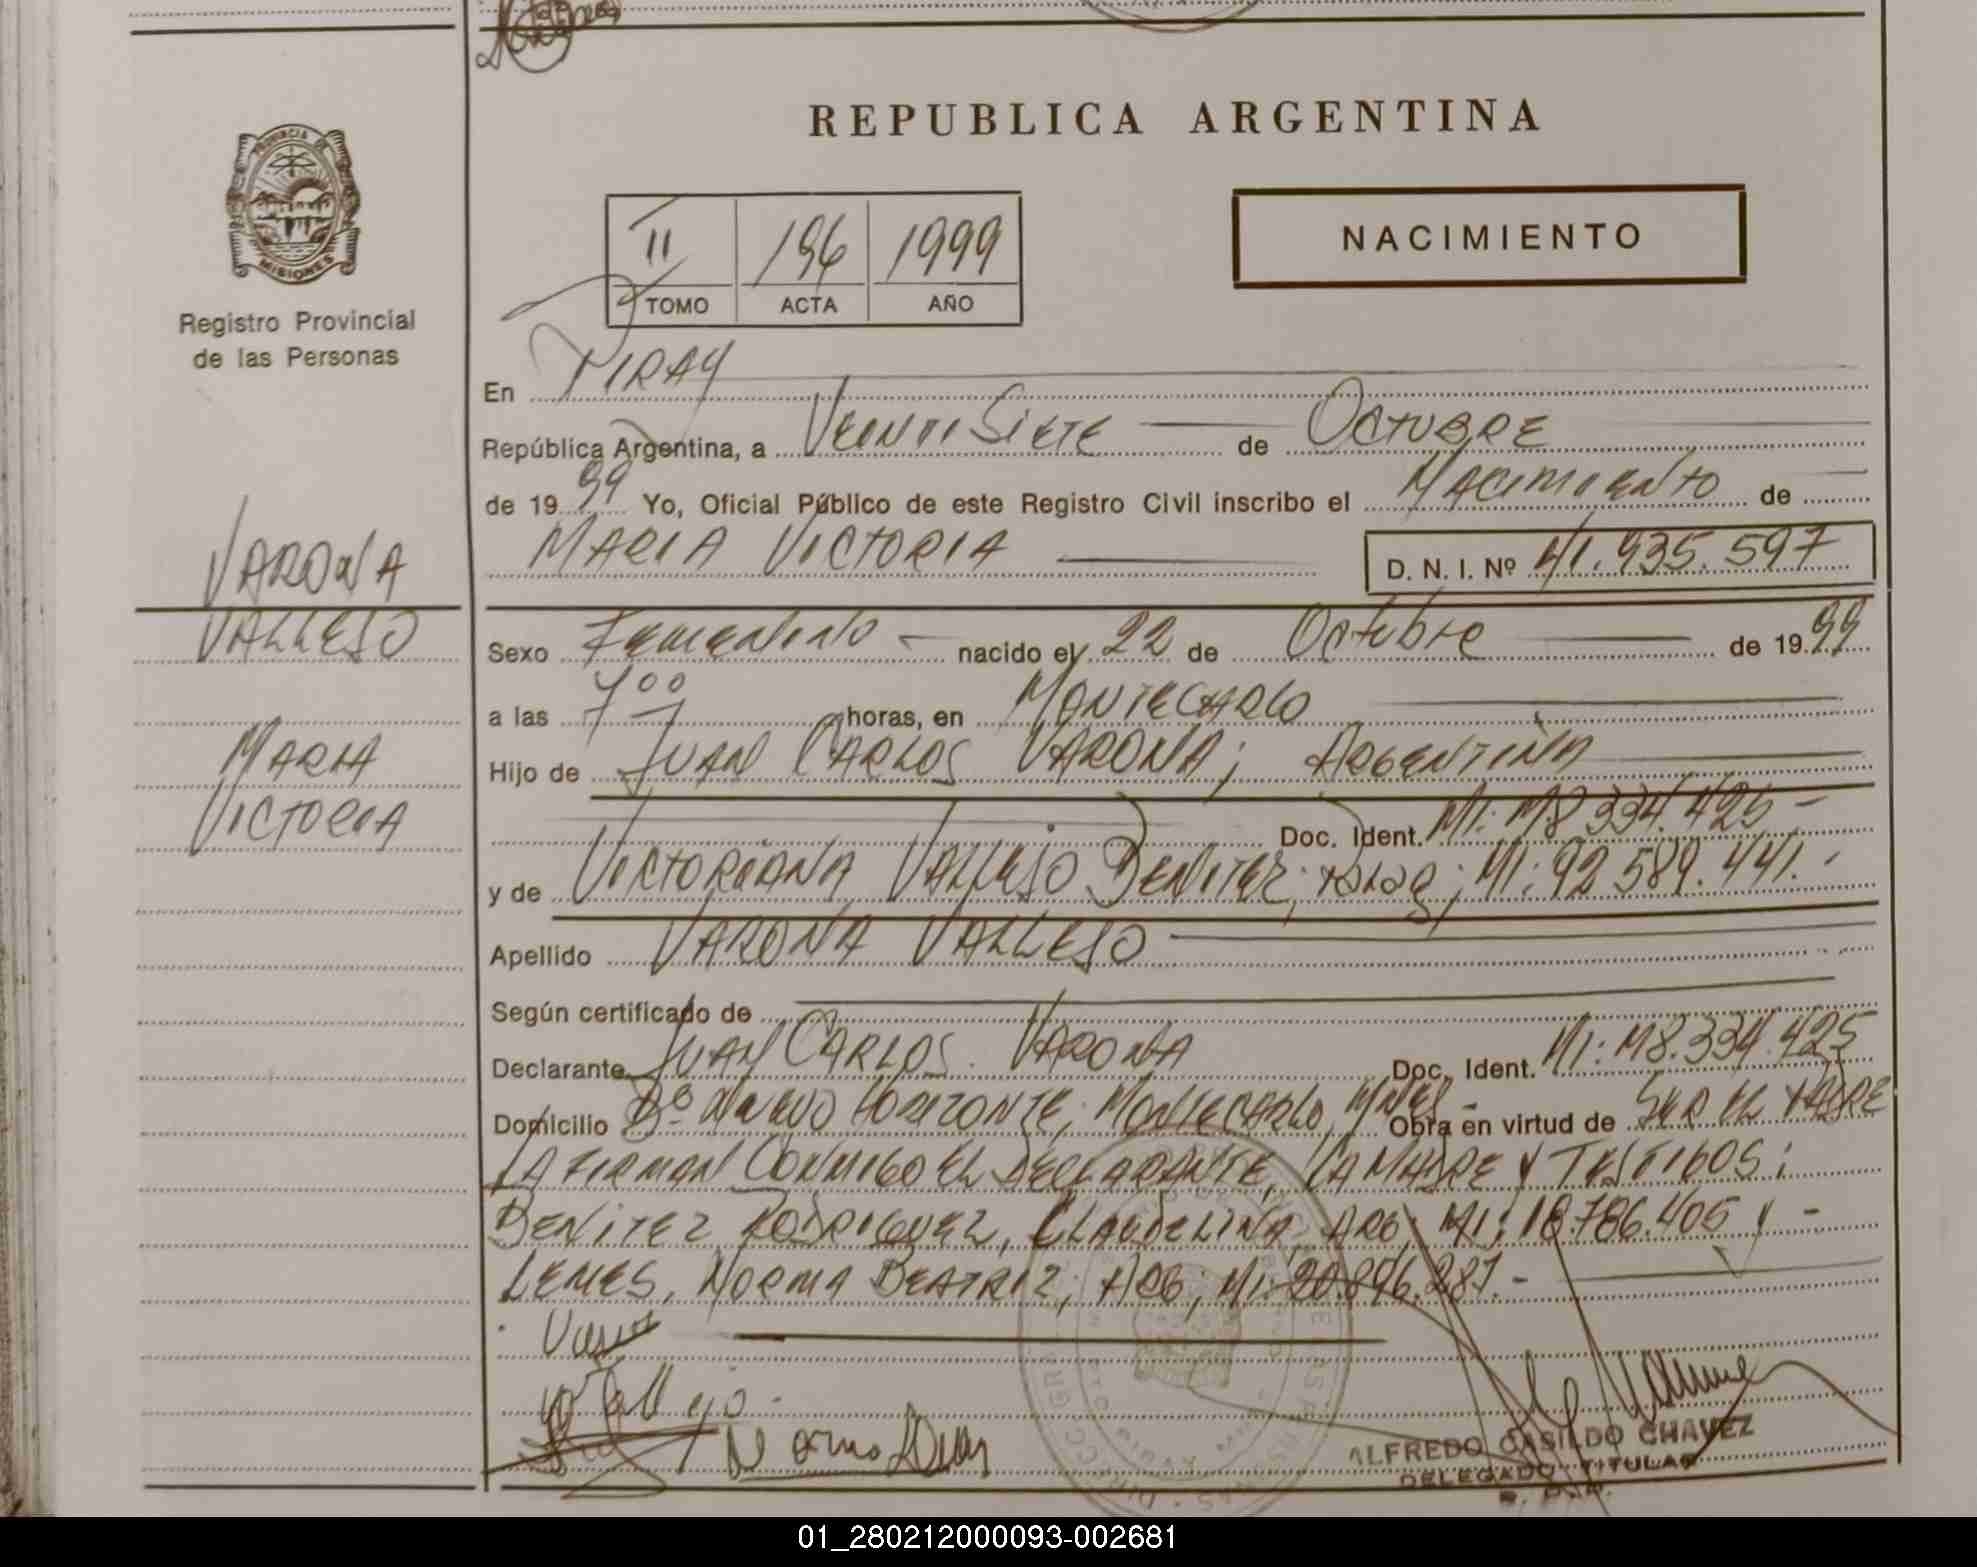 REPUBLICA ARGENTINA
PROVINCIA DE
MISIONES
Registro Provincial
de las Personas
II 196 1999
TOMO ACTA AÑO
NACIMIENTO
En
República Argentina, a Veintisiete de OCTUBRE
de 1999 Yo, Oficial Público de este Registro Civil inscribo el Nacimiento de
MARIA VICTORIA D. N. I. Nº 41.935.597
VARONA
VALLEJO
MARIA
VICTORIA
Sexo Femenino nacido el 22 de Octubre de 1999
a las 7 00 horas, en MONTECARLO
Hijo de JUAN CARLOS VARONA; ARGENTINA
Doc. Ident. MI: M8.334.425-
y de VICTORIANA VALLEJO BENITEZ; MI: 92.589.441.-
Apellido VARONA VALLEJO
Según certificado de
Declarante JUAN CARLOS VARONA Doc. Ident. MI: M8.334.425
Domicilio Bº NUEVO HORIZONTE; MONTECARLO, MNES- Obra en virtud de SER EL PADRE
FIRMAN CONMIGO EL DECLARANTE, LA MADRE Y TESTIGOS:
BENITEZ RODRIGUEZ, CLAUDELINA ARG; MI: 18.786.405 y -
LEMES, NORMA BEATRIZ; ARG; MI: 20.896.287.-
Vallejo.
Norma
ALFREDO CASILDO CHAVEZ
DELEGADO TITULAR
01_280212000093-002681